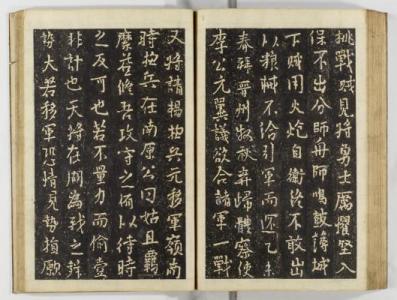 挑戰賊見將勇士厲擢堅入
保不出分師毋師鳴鼓譟城
下賊用火炮自衛終不敢出
以賴鹹不給引軍而還乙未
春蘇晉州叛棄歸體察使
李公元翼議欲合諸軍一戰
又將請揚抽兵元移軍嶺南
時抽兵在南原公曰姑且羈
縻益脩吾攻守之備以待時
之友可也若不量力而偷壹
非計也天將在湖為我之
勢大若移軍恐情見勢掬願